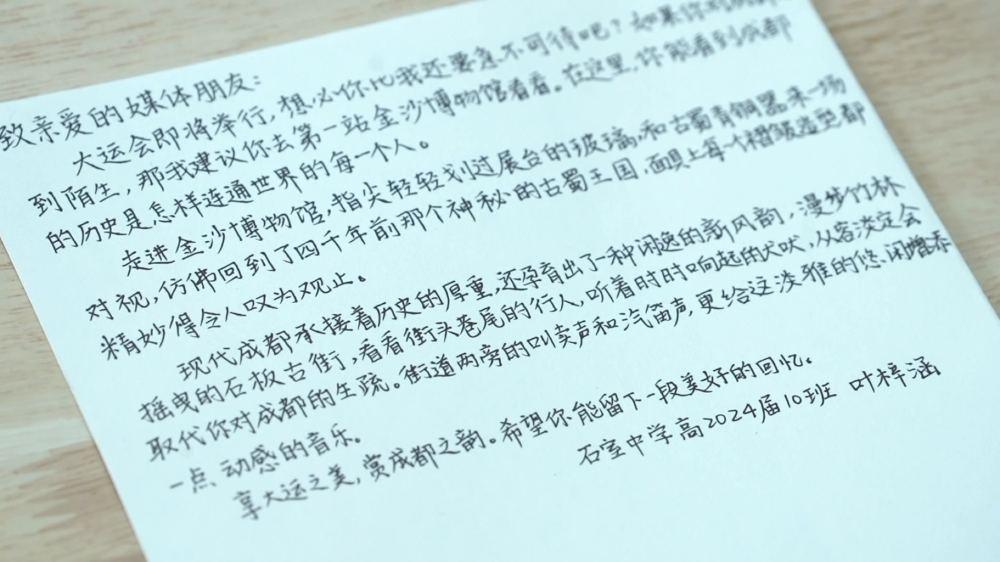 致亲爱的媒体朋友:
大运会即将举行,想必你比我还要急不可待吧?如果你对成都感
到陌生,那我建议你去第一站金沙博物馆看看。在这里,你能看到成都
的历史是怎样连通世界的每一个人。
走进金沙博物馆,指尖轻轻划过展台的玻璃,和古蜀青铜器来一场
对视,仿佛回到了四千年前那个神秘的古蜀王国,面具上每一个褶皱造型都
精妙得令人叹为观止。
现代成都承接着历史的厚重,还孕育出了一种闲逸的新风韵,漫步竹林
摇曳的石板古街,看看街头巷尾的行人,听着时时响起的犬吠,从容淡定会
取代你对成都的生疏。街道两旁的叫卖声和汽笛声,更给这淡雅的悠闲增添
一点动感的音乐。
享大运之美,赏成都之韵。希望你能留下一段美好的回忆。
石室中学高2024届10班 叶梓涵